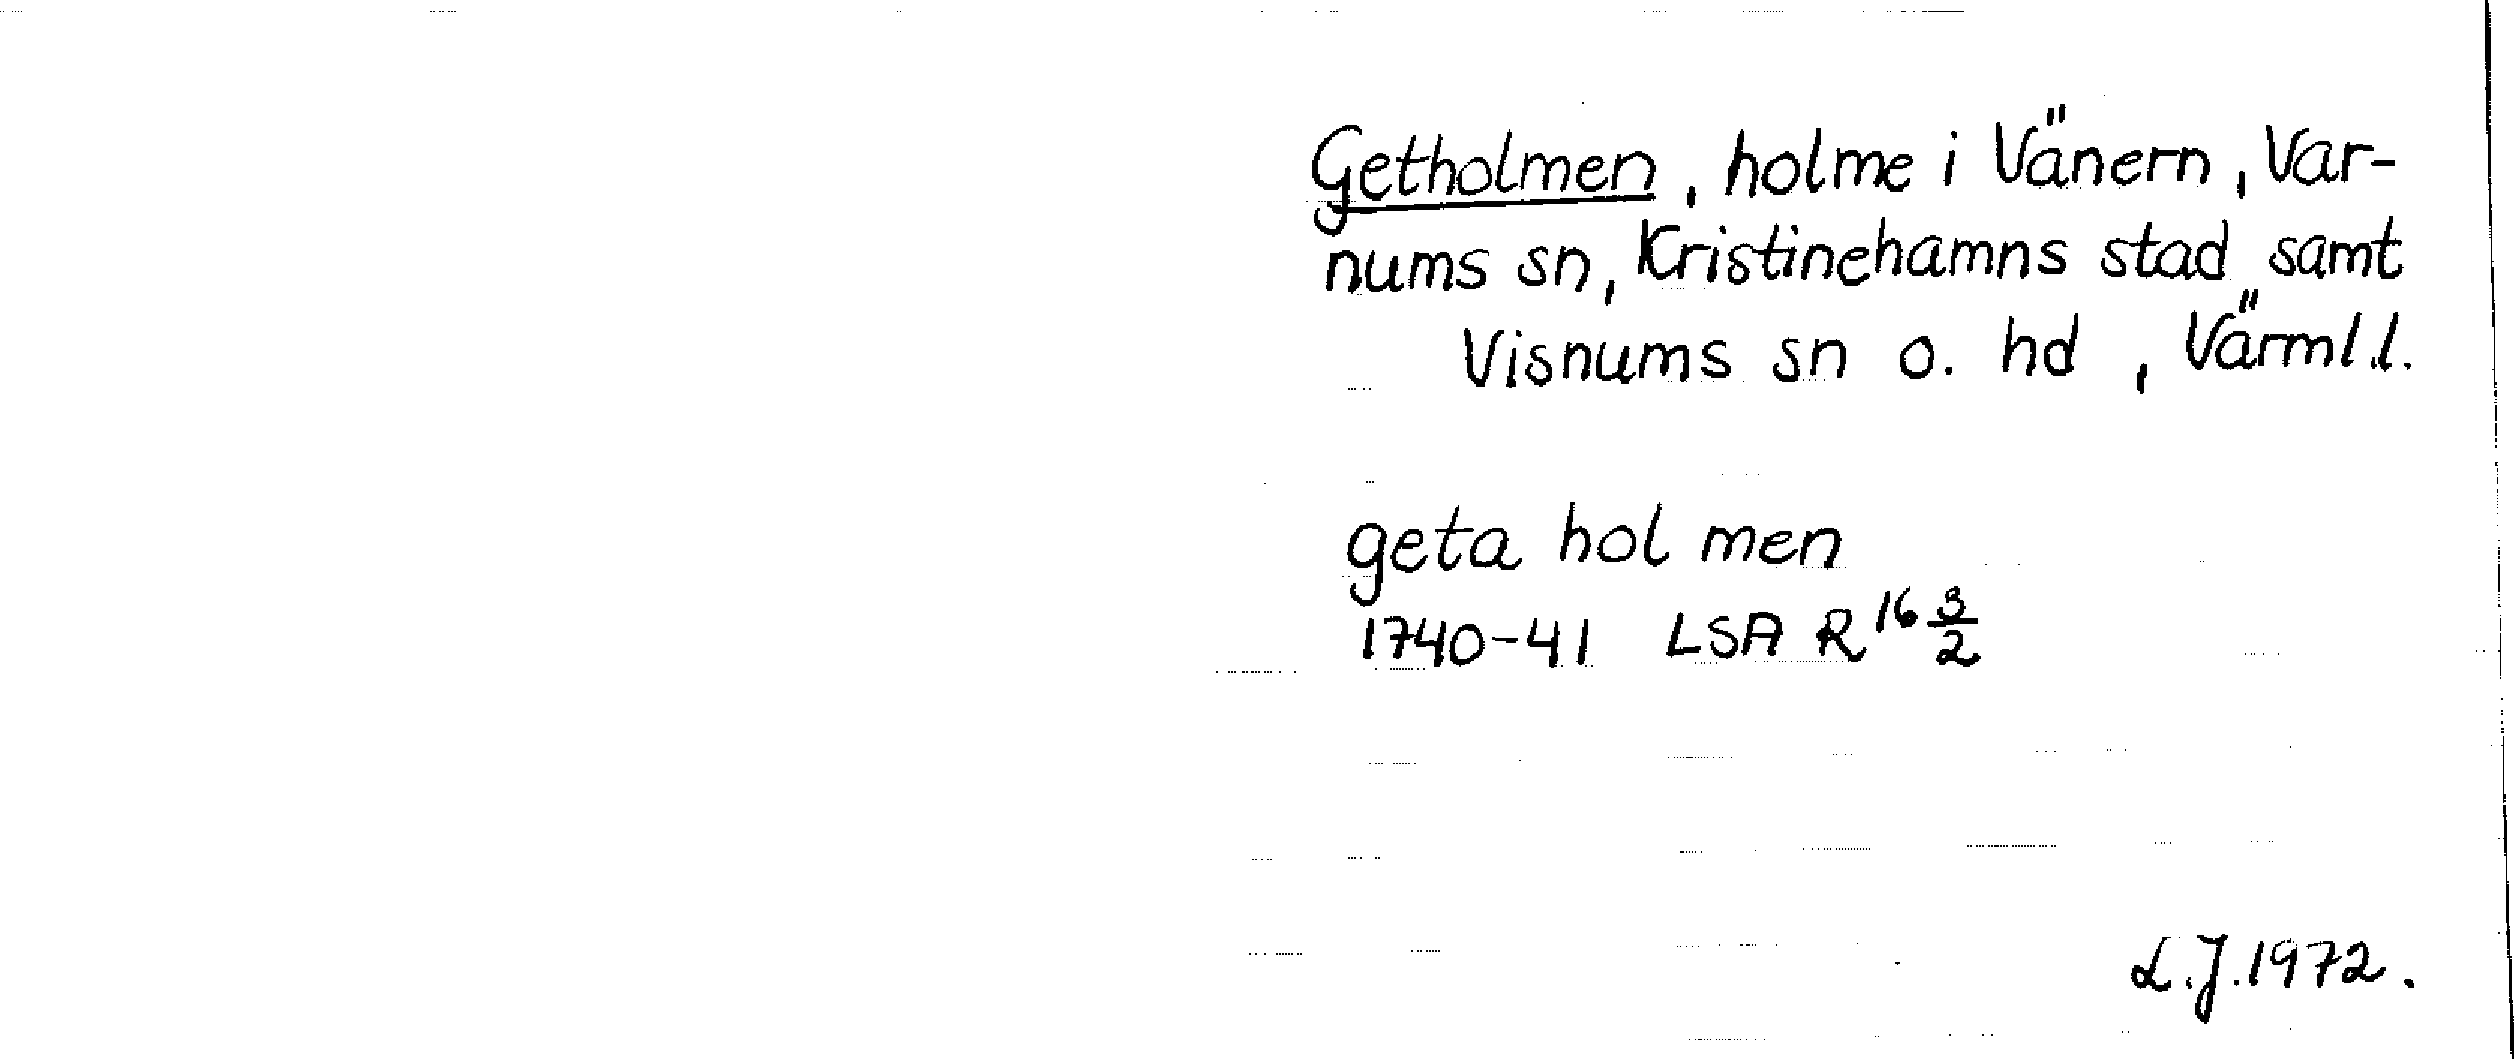 Getholmen, holme i Vänern, Var-
nums sn, Kristinehamns stad samt
Visnums sn o. hd, Värml l.
geta hol men
1740-41 LSA R 16 3/2
L.J. 1972.